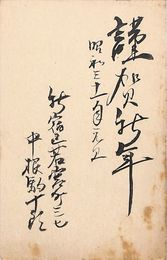 謹賀新年
昭和三十一年元旦
新宿区若宮町二七
中根駒十郎